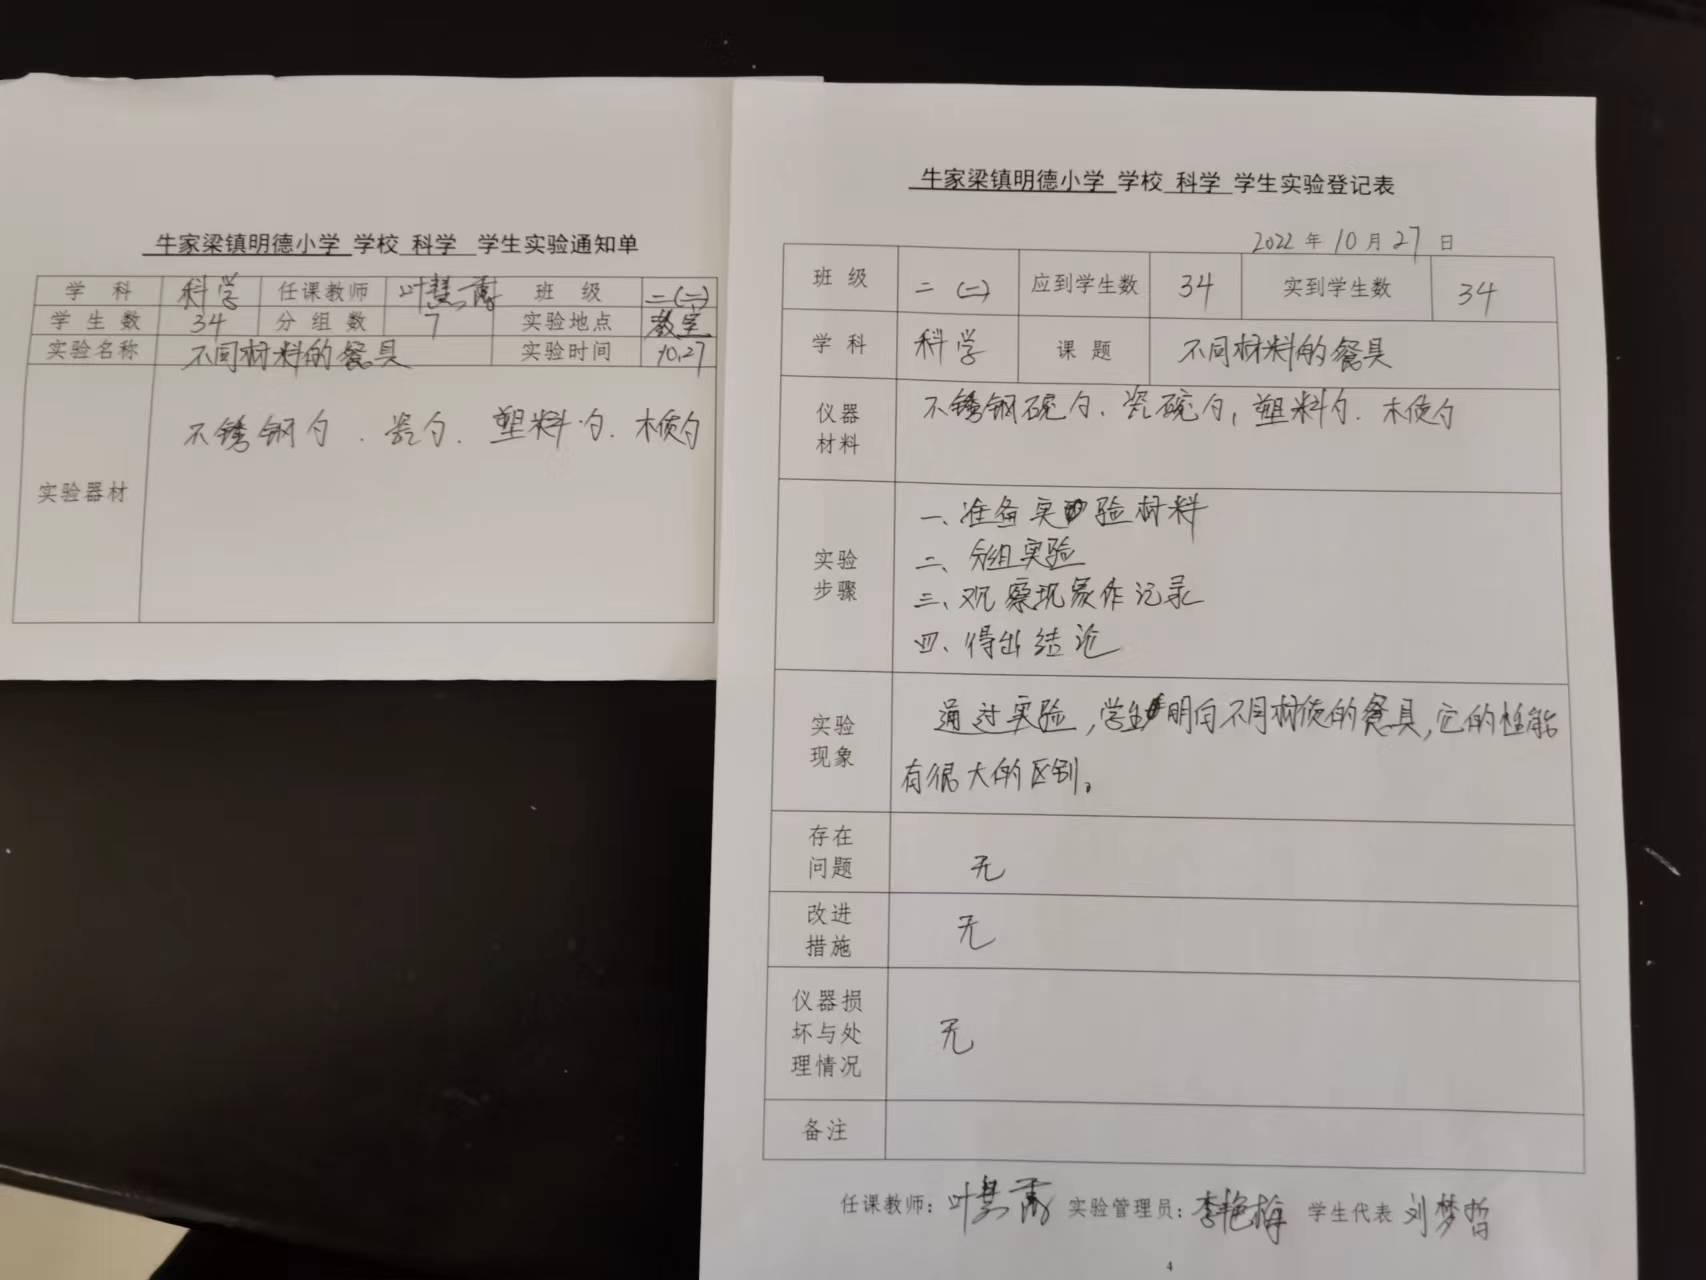 牛家梁镇明德小学 学校 科学 学生实验通知单
学科 科学 任课教师 叶慧 班级 二(二)
学生数 34 分组数 7 实验地点 教室
实验名称 不同材料的餐具 实验时间 10.27
实验器材 不锈钢勺、瓷勺、塑料勺、木质勺
牛家梁镇明德小学 学校 科学 学生实验登记表
2022年10月27日
班级 二(二) 应到学生数 34 实到学生数 34
学科 科学 课题 不同材料的餐具
仪器
材料
不锈钢碗勺、瓷碗勺,塑料勺、木质勺
实验
步骤
一、准备实验材料
二、分组实验
三、观察现象作记录
四、得出结论
实验
现象
通过实验,学生明白不同材质的餐具,它的性能
有很大的区别。
存在
问题
无
改进
措施
无
仪器损
坏与处
理情况
无
备注
任课教师:叶慧 实验管理员:李艳梅 学生代表 刘梦哲
4